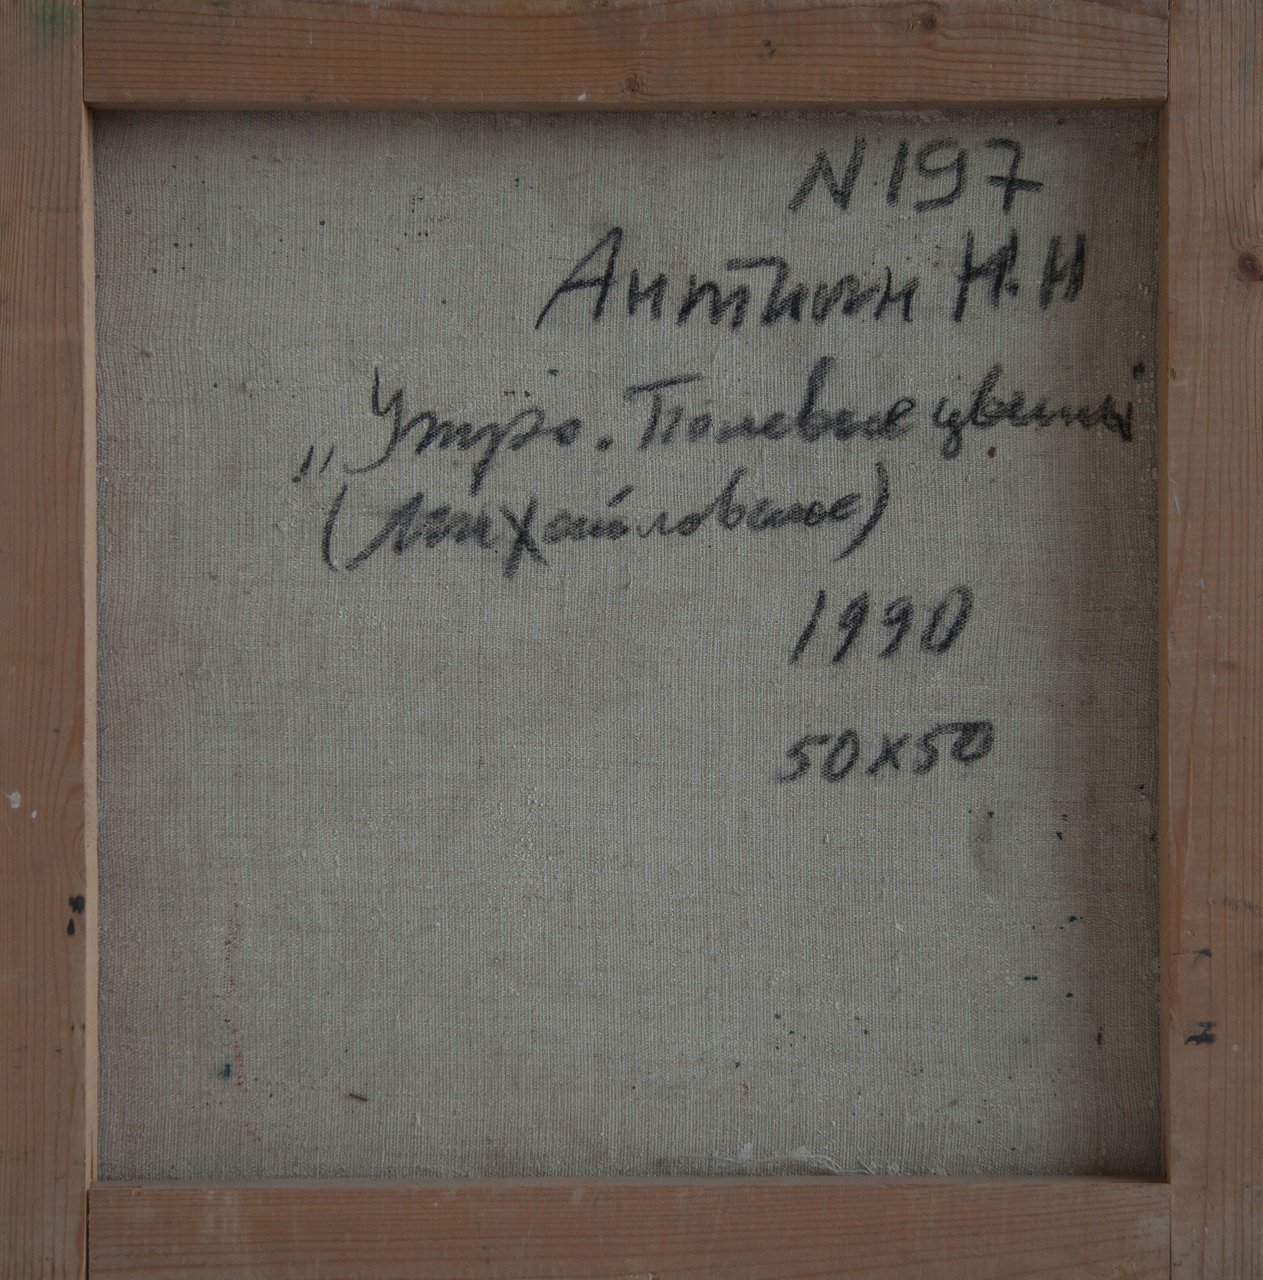 N 197
Антипин Н.Н
„Утро. Полевые цветы"
(Михайловское)
1990
50х50